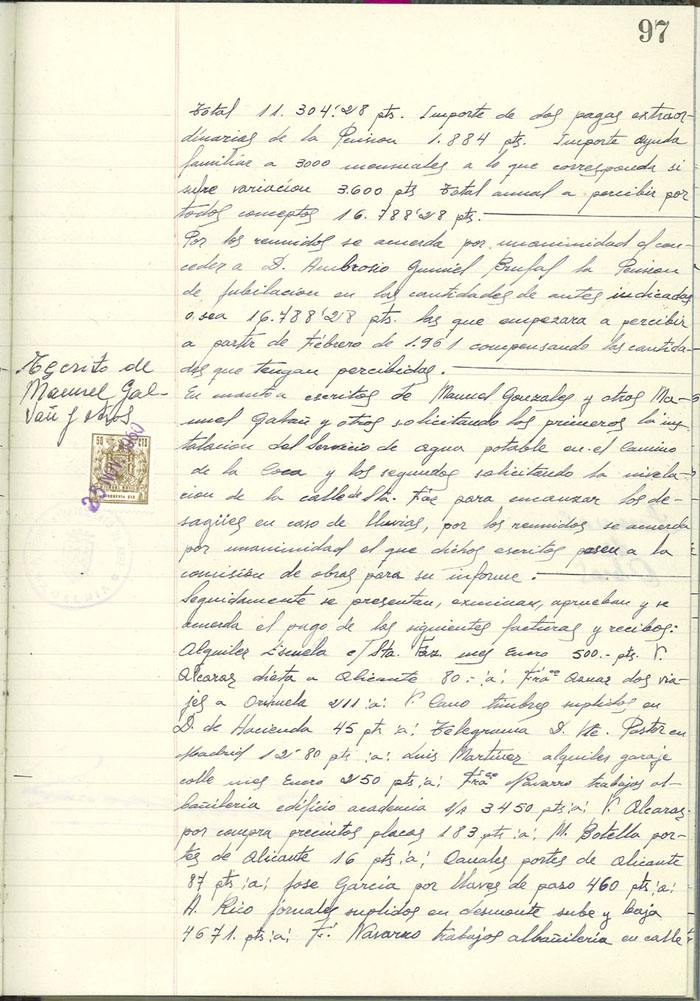 97
Total 11.304'28 pts. Importe de dos pagas extraor-
dinarias de la Pension 1.884 pts. Importe ayuda
familiar a 3000 mensuales a lo que corresponda si
sufre variacion 3.600 pts Total anual a percibir por
todos conceptos 16.788'28 pts.
Por los reunidos se acuerda por unanimidad el con-
ceder a D. Ambrosio Gumiel la Pension
de Jubilacion en las cantidades de antes indicadas
o sea 16.488'28 pts. las que empezara a percibir
a partir de Febrero de 1.961 compensando las cantida-
des que tengan percibidas.
Escrito de
Manuel Gal-
vañ y otros
En cuanto a escritos de Manuel Gonzales y otros Ma-
nuel Galvañ y otros solicitando los primeros la ins-
talacion del Servicio de agua potable en el Camino
de la Coca y los segundos solicitando la nivela-
cion de la calle de Sta. Faz para encauzar los de-
sagües en caso de lluvias, por los reunidos se acuerda
por unanimidad el que dichos escritos pasen a la
comisión de obras para su informe.
50 CTS
Seguidamente se presentan, examinan, aprueban y se
acuerda el pago de las siguientes facturas y recibos:
Alquiler Escuela c/ Sta. Faz mes Enero 500.- pts. V.
Alcaraz dieta a Alicante 80.- :a: Frco Aznar dos via-
jes a Orihuela 211 :a: V. Cano timbres suplidos en
D. de Hacienda 45 pts :a: Telegrama D. Vte. Pastor en
Madrid 12'80 pts :a: Luis Martinez alquiler garaje
calle mes Enero 250 pts :a: Frco Navarro trabajos al-
bañileria edificio academia s/r 3450 pts :a: V. Alcaraz
por compra precintos placas 183 pts :a: M. Botella por-
tes de Alicante 16 pts :a: Canales portes de Alicante
87 pts :a: Jose Garcia por llaves de paso 460 pts :a:
A. Rico jornales suplidos en desmonte sube y baja
4671. pts :a: F. Navarro trabajos albañileria en calle